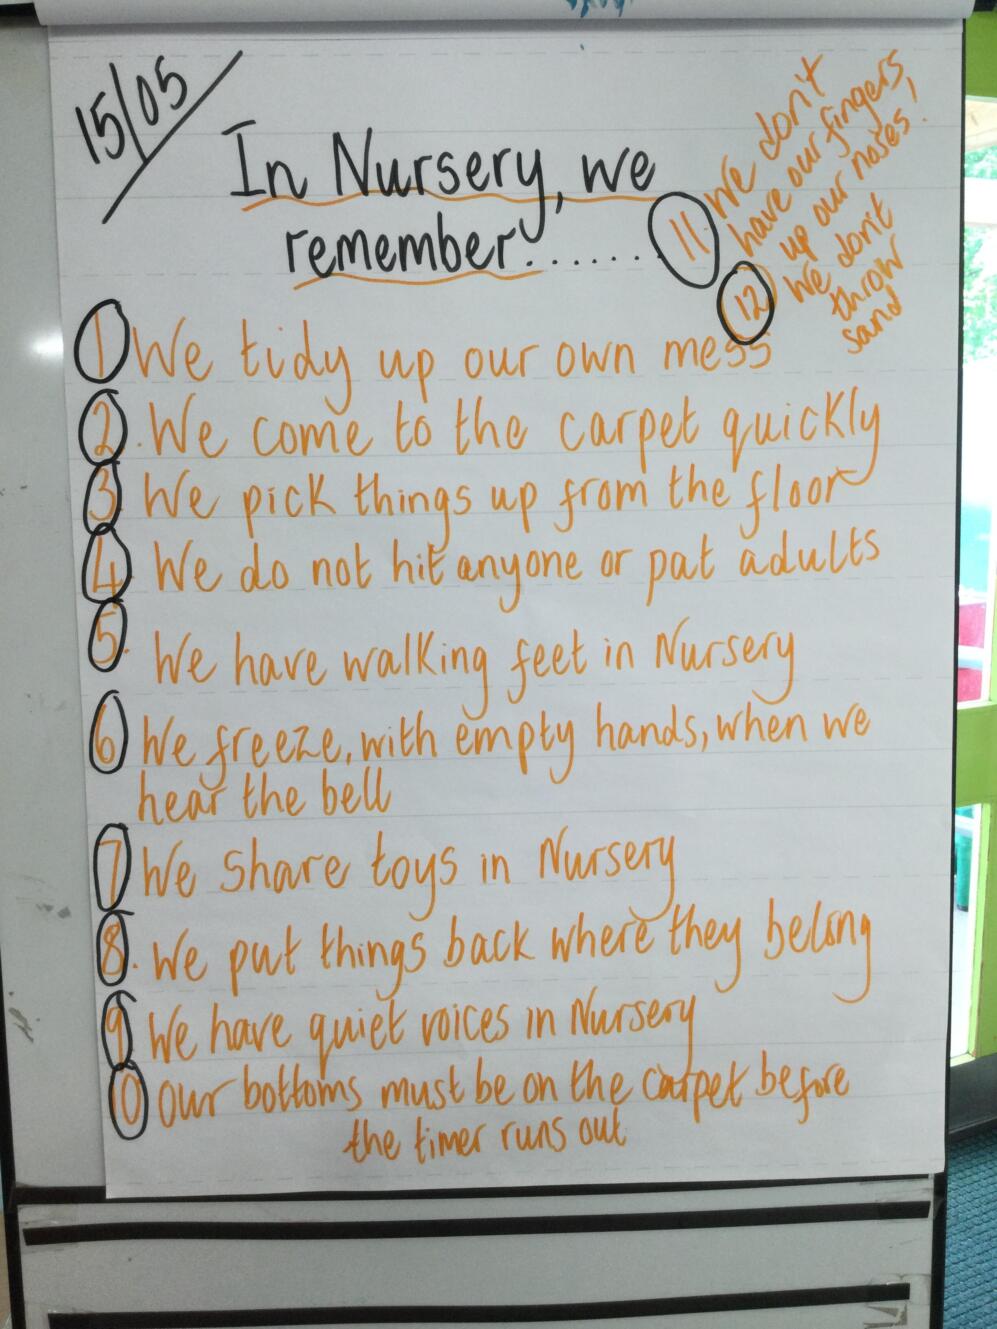 15/05
In Nursery, we
remember.......
1 We tidy up our own mess
2. We come to the carpet quickly
3 We pick things up from the floor
4. We do not hit anyone or pat adults
5. We have walking feet in Nursery
6 We freeze, with empty hands, when we
hear the bell
7 We share toys in Nursery
8. We put things back where they belong
9 We have quiet voices in Nursery
10 Our bottoms must be on the carpet before
the timer runs out
11. We don't
have our fingers,
up our noses!
12 We don't
throw
sand